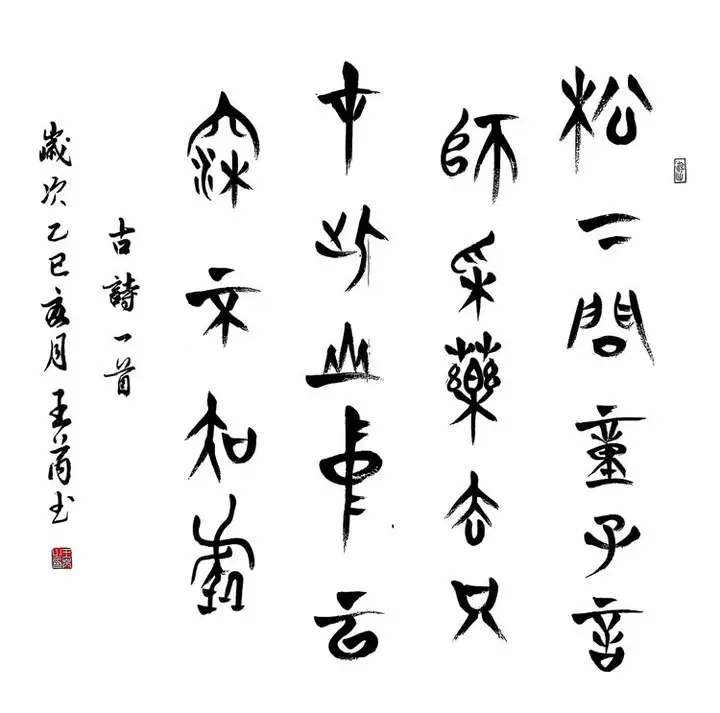 松下問童子言
師采藥去只
在此山中云
深不知處
古詩一首
歲次乙巳亥月王书